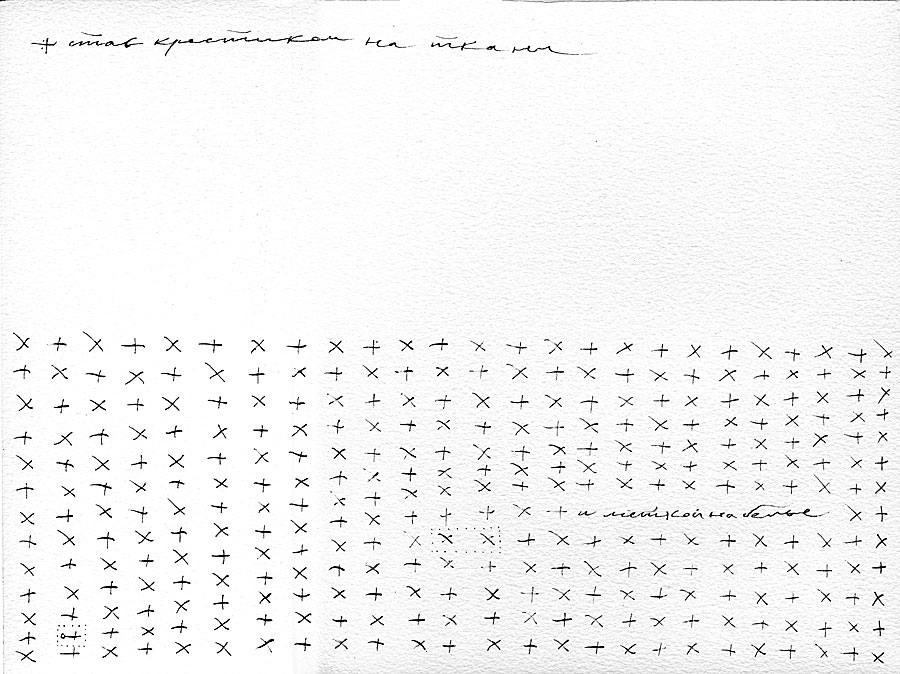 + став крестиком на ткани
и меткой на белье